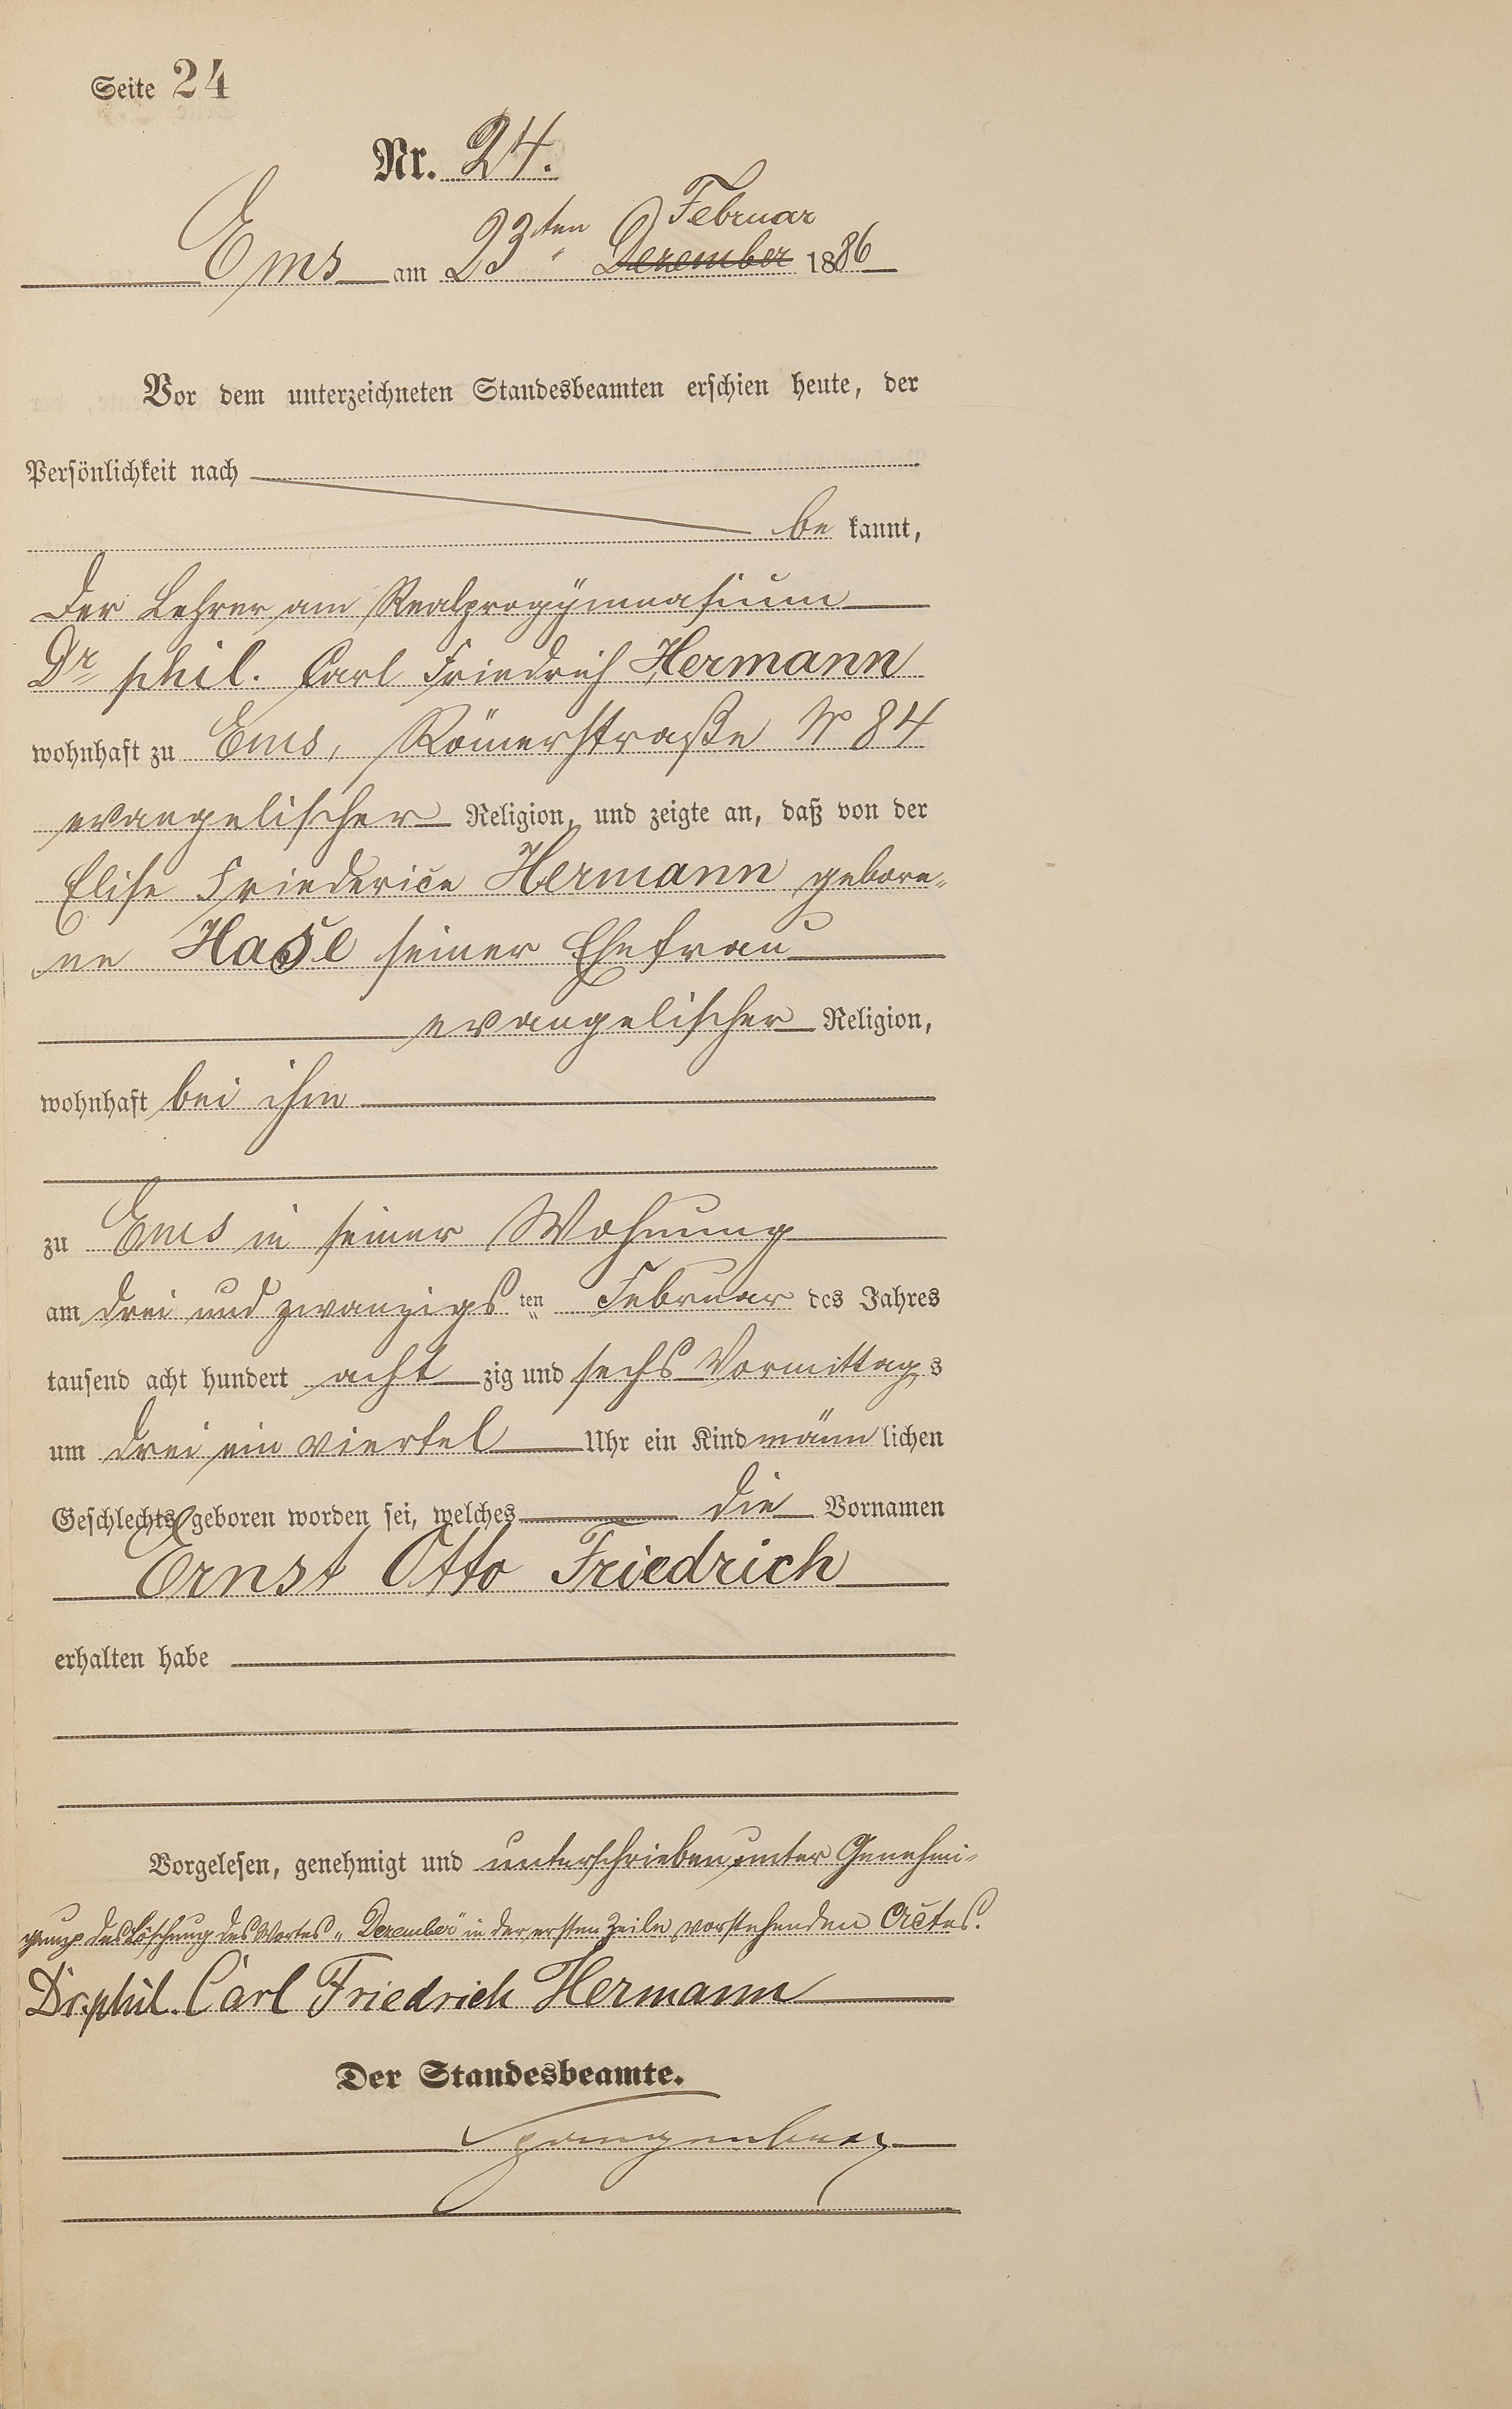 Seite 24
Nr. 24.
Februar
Ems am 23ten Dezember 1886
Vor dem unterzeichneten Standesbeamten erschien heute, der
Persönlichkeit nach
be kannt,
der Lehrer am Realprogymnasium
Dr phil. Carl Friedrich Hermann
wohnhaft zu Ems, Römerstraße No 84
evangelischer Religion, und zeigte an, daß von der
Elise Friederice Hermann gebore-
ne Hase seiner Ehefrau
evangelischer Religion,
wohnhaft bei ihm
zu Ems in seiner Wohnung
am drei und zwanzigsten Februar des Jahres
tausend acht hundert acht zig und sechs Vormittags
um drei ein viertel Uhr ein Kind männlichen
Geschlechts geboren worden sei, welches die Vornamen
Ernst Otto Friedrich
erhalten habe
Vorgelesen, genehmigt und unterschrieben unter Genehmi-
gung der Löschung des Wortes „Dezember" in der ersten Zeile vorstehenden Actes.
Dr. phil. Carl Friedrich Hermann
Der Standesbeamte.